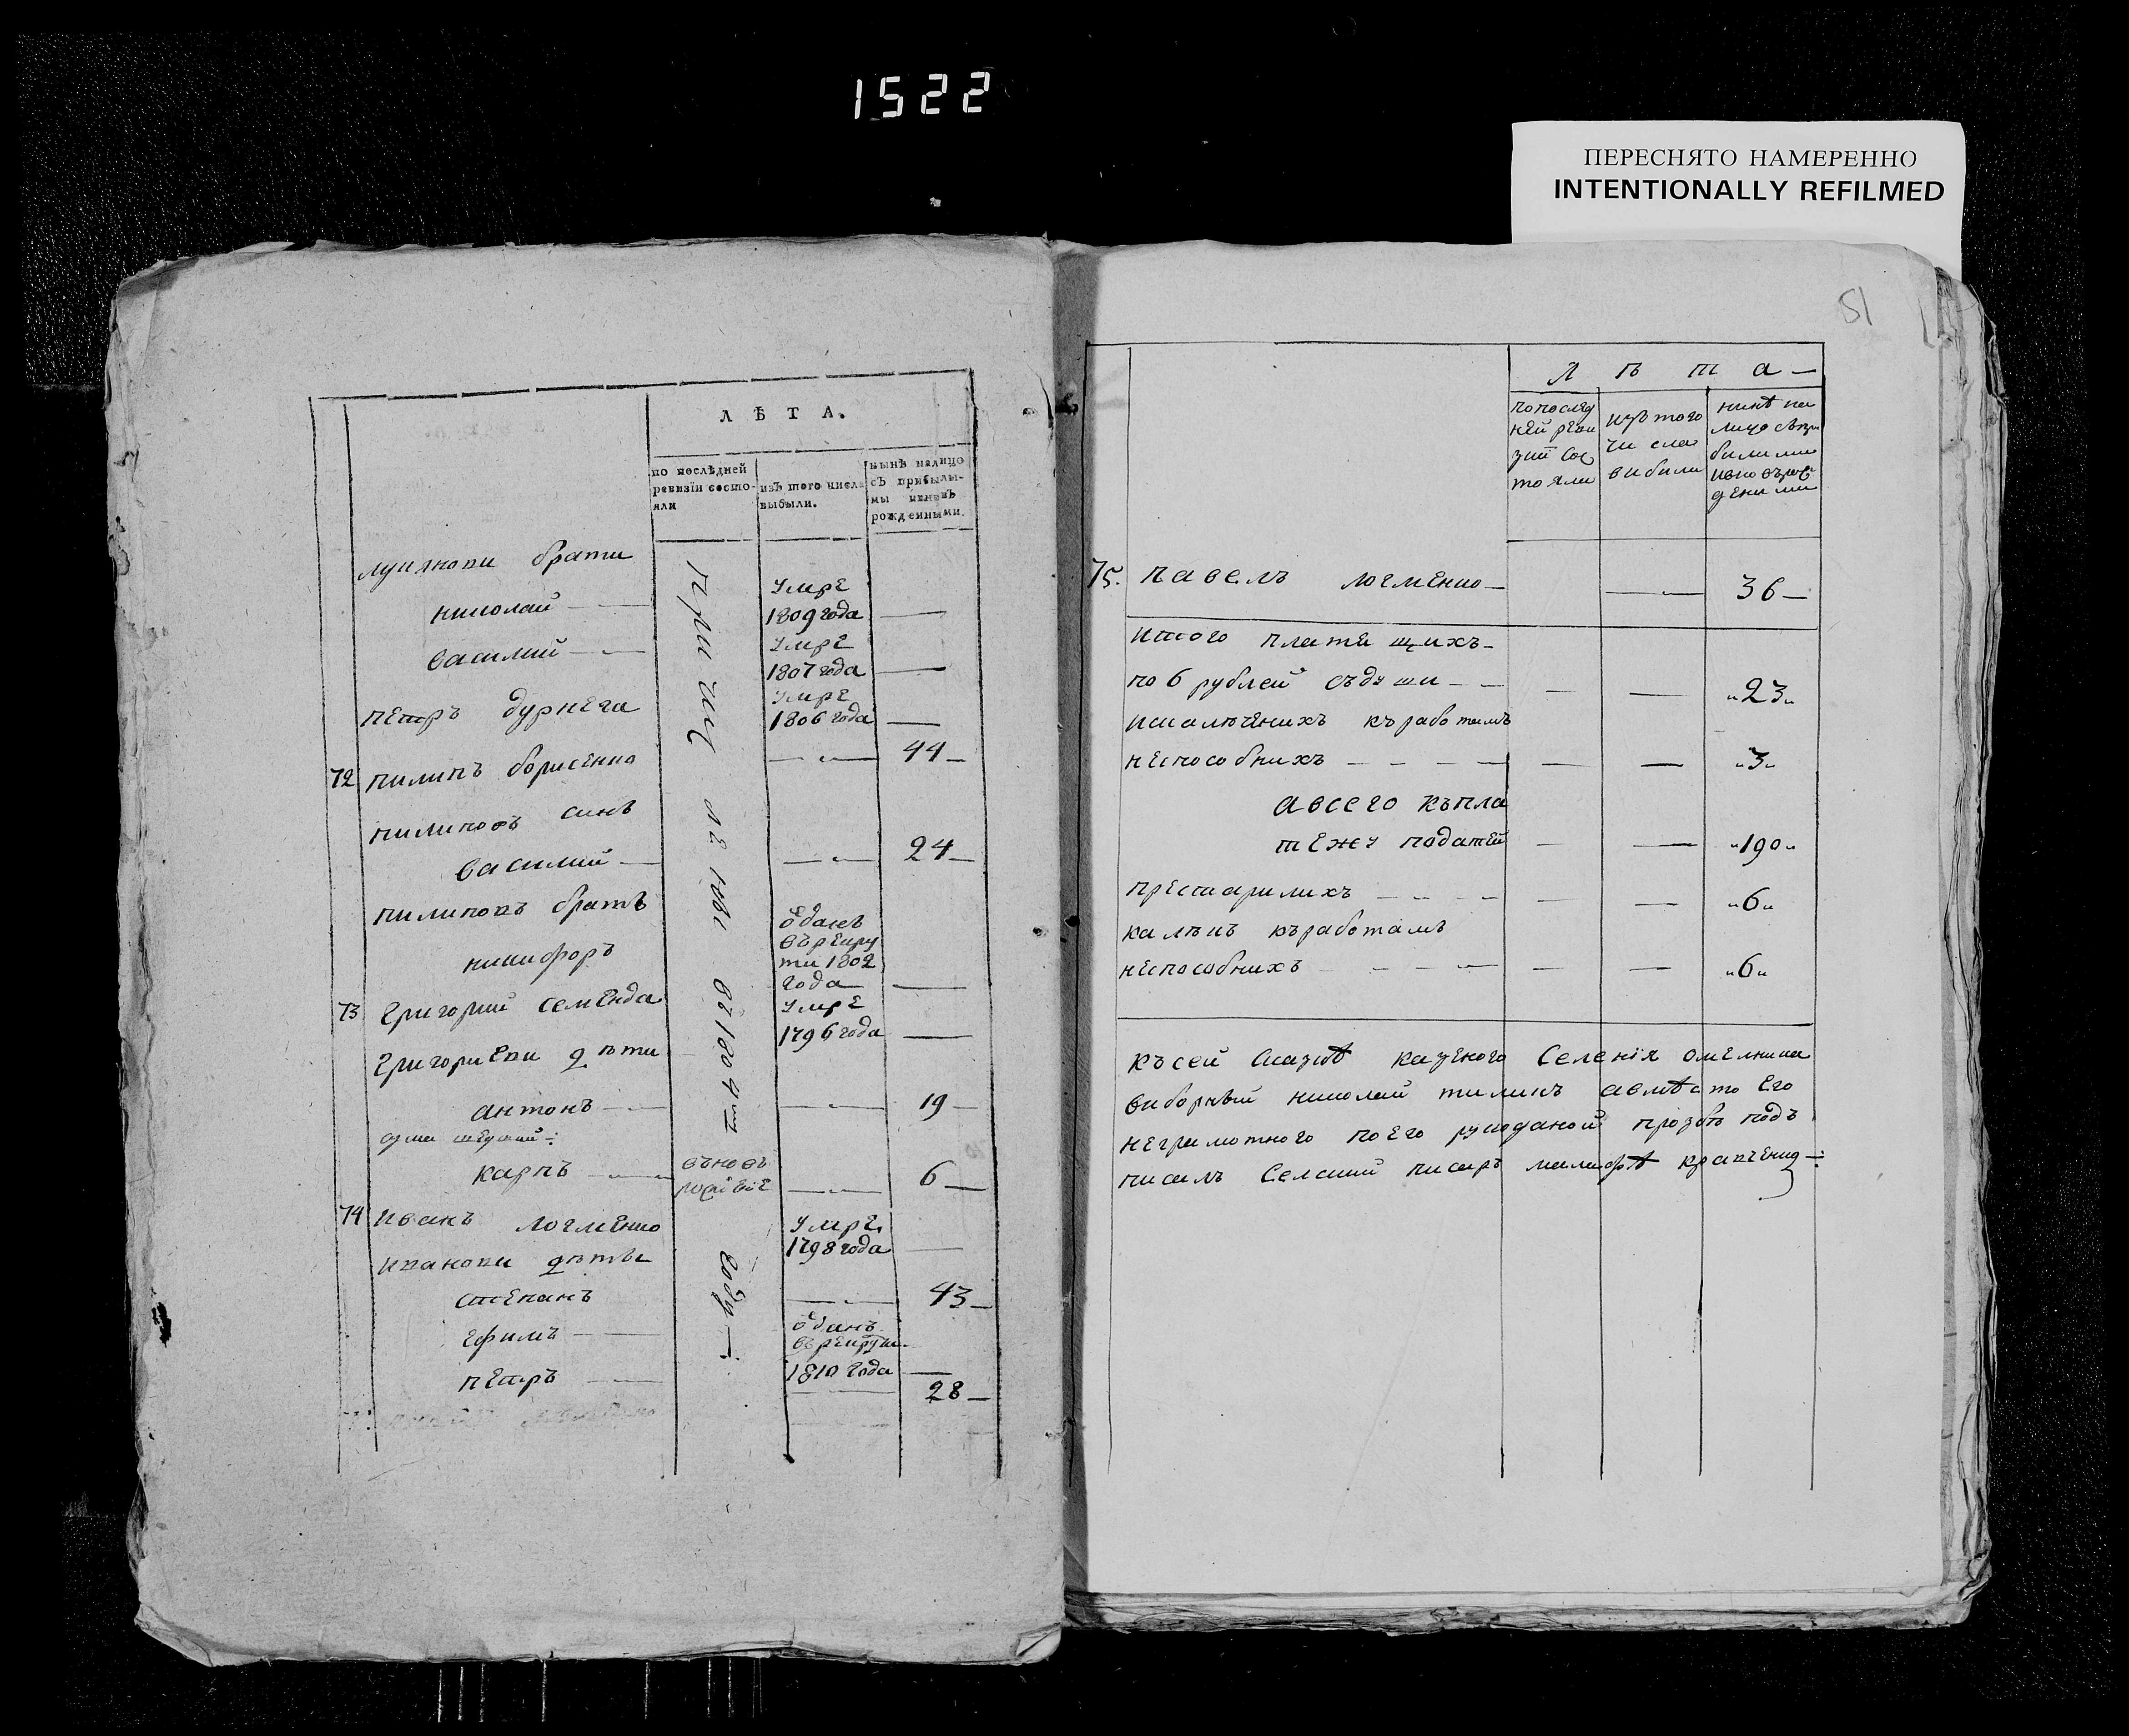 1522
ПЕРЕСНЯТО НАМЕРЕННО
INTENTIONALLY REFILMED
51
ЛѢТА.
по послѣдней ревизіи состояли
изъ того числа выбыли.
нынѣ налицо съ прибылыми и новъ рожденными.
лукянови брати
николай — умре 1809 года —
василий — умре 1807 года —
петръ дурнега умре 1806 года —
72 пилипъ борисенко — 44
пилиповъ синъ
василий — 24
пилиповъ братъ
никифоръ одакъ въ рекрути 1802 года —
73 григорий семенда умре 1796 года —
григориеви дѣти
антонъ — 19
карпъ — въновь — 6
74 иванъ логменко умре 1798 года —
иванови дѣти
степанъ — 43
ефимъ — оданъ въ рекрути 1810 года —
петръ — 28
году
лѣта
по последней ревизии состояли
изъ того числа вибили
нинѣ на лицо
75. павелъ логменко — 36
итого платящихъ
по 6 рублей съ души — — „23„
исключенихъ къ работамъ
неспособнихъ — — „3„
а всего къ пла
тежу податей — — „190„
престарилихъ — — „6„
калѣкъ къ работамъ
неспособнихъ — — „6„
къ сей сказкѣ казеного селенія омелника
виборний николай тиликъ а вмѣсто его
неграмотного по его рукоданой прозбѣ подъ
писалъ селский писаръ